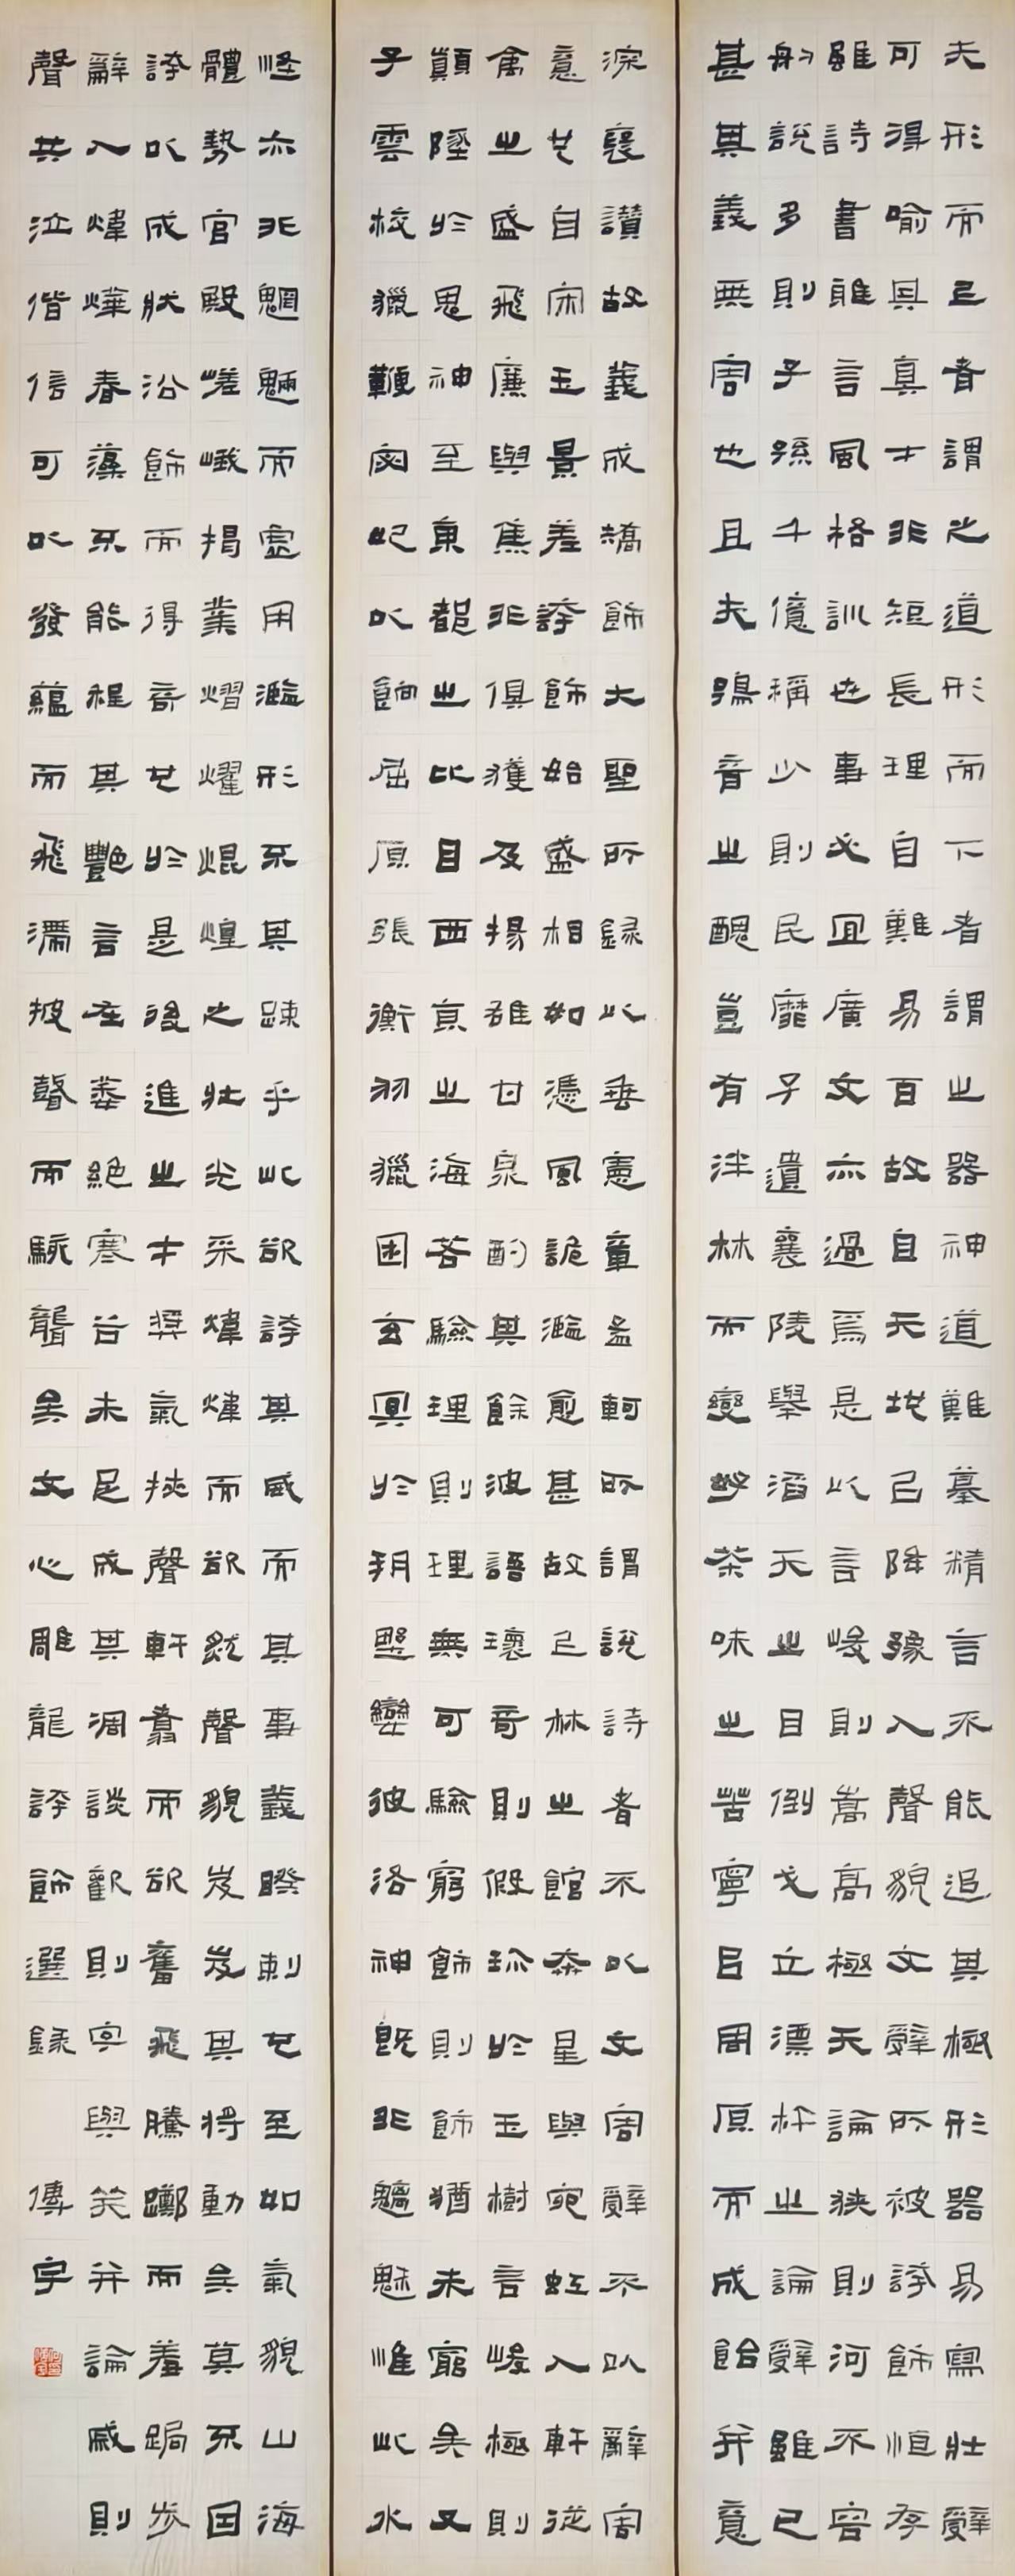 夫形而上者謂之道形而下者謂之器神道難摹精言不能追其極形器易寫壯辭
可得喻其真才非短長理自難易耳故自天地已降豫入聲貌文辭所被誇飾恒存
雖詩書雅言風格訓世事必宜廣文亦過焉是以言峻則嵩高極天論狹則河不容
舠說多則子孫千億稱少則民靡孑遺襄陵舉滔天之目倒戈立漂杵之論辭雖已
甚其義無害也且夫鴞音之醜豈有泮林而變好荼味之苦寧以周原而成飴並意
深褒讚故義成矯飾大聖所錄以垂憲章孟軻所謂說詩者不以文害辭不以辭害
意也自宋玉景差誇飾始盛相如憑風詭濫愈甚故上林之館奔星與宛虹入軒從
禽之盛飛廉與焦明俱獲及揚雄甘泉酌其餘波語瓌奇則假珍於玉樹言峻極則
顛墜於鬼神至東都之比目西京之海若驗理則理無可驗窮飾則飾猶未窮矣又
子雲校獵鞭宓妃以饟屈原張衡羽獵困玄冥於朔野孌彼洛神既非魑魅惟此水
怪亦非魍魎而虛用濫形不其疎乎此欲誇其威而其事義睽剌也至如氣貌山海
體勢宮殿嵯峨揭業熠耀焜煌之狀光采煒煒而欲然聲貌岌岌其將動矣莫不因
誇以成狀沿飾而得奇也於是後進之才獎氣挾聲軒翥而欲奮飛騰躑而羞跼步
辭入煒燁春藻不能程其豔言在萎絕寒谷未足成其凋談歡則字與笑並論慼則
聲共泣偕信可以發蘊而飛滯披瞽而駭聾矣文心雕龍誇飾選錄 傳宇